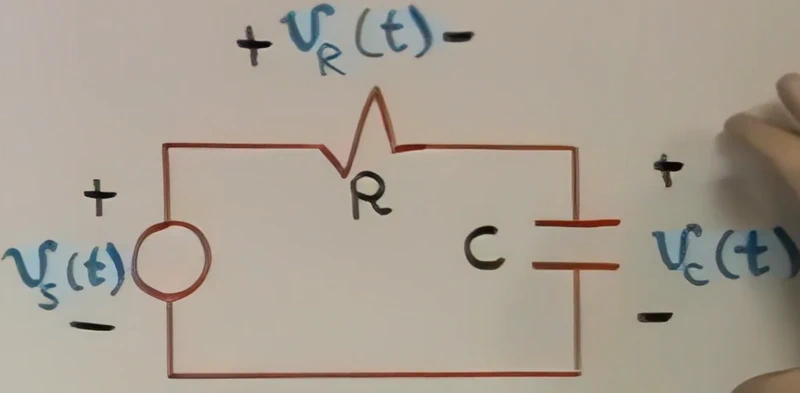 + V_R(t) -
+ R +
V_S(t) C V_C(t)
- -